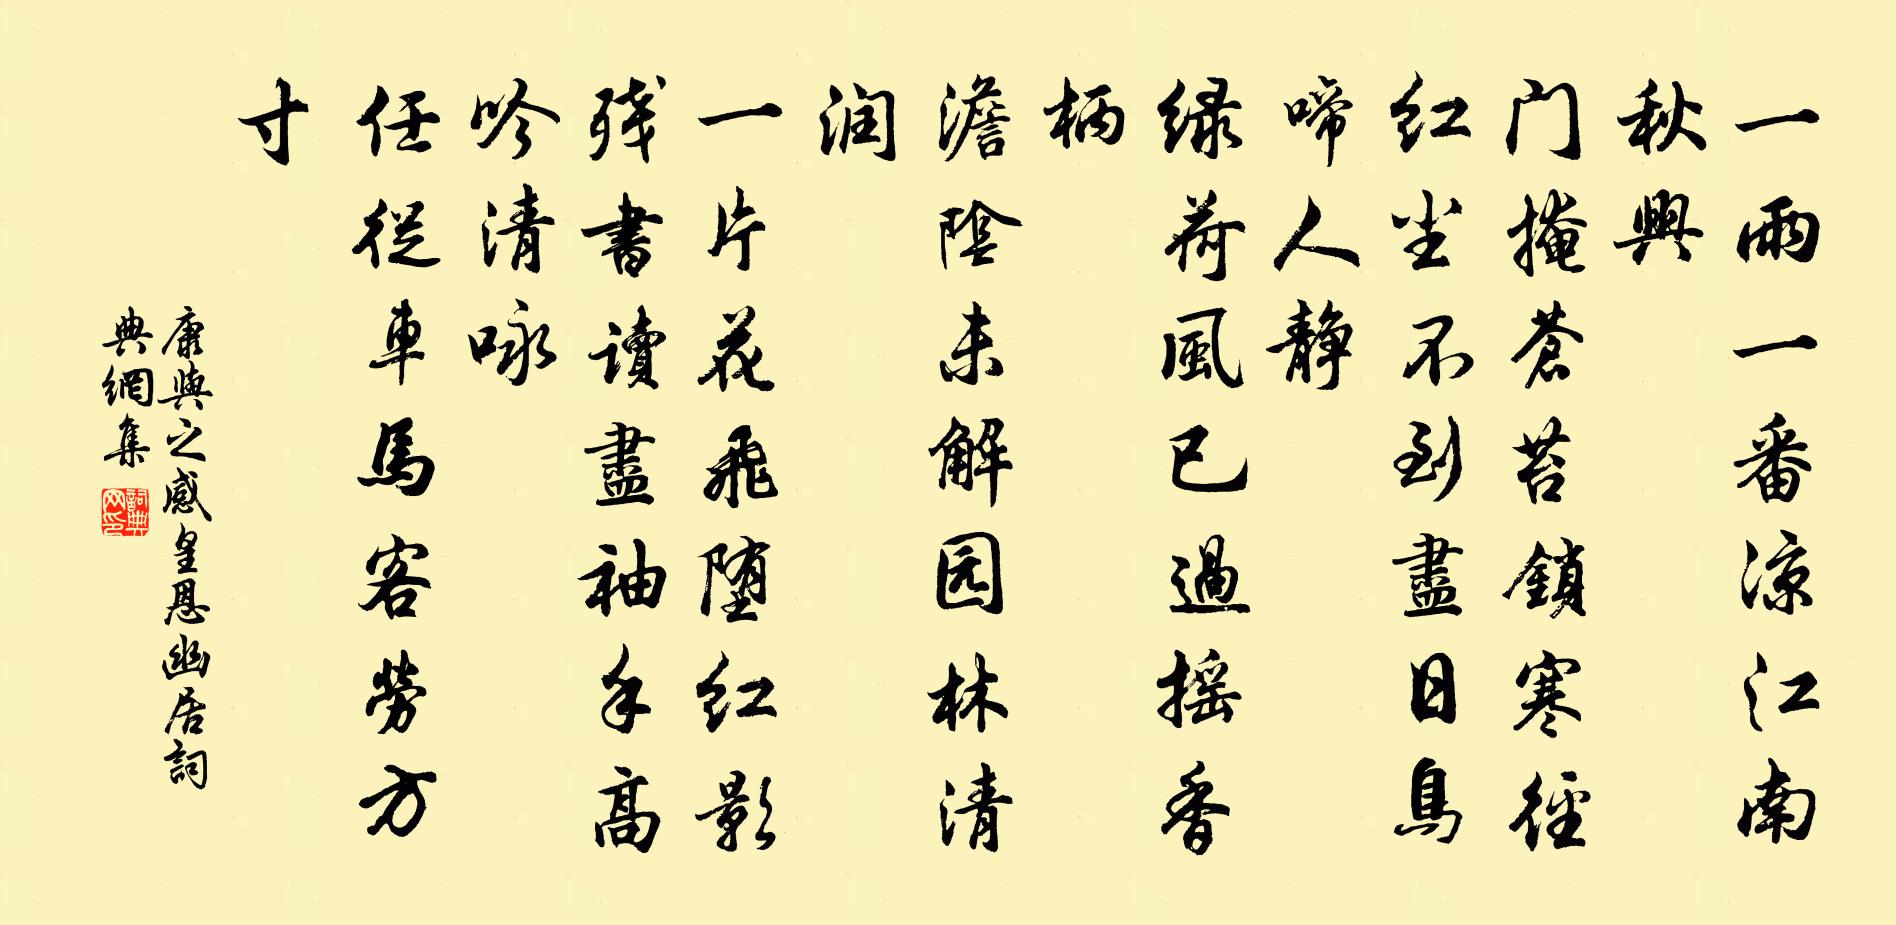 一雨一番凉江南
秋興
门掩蒼苔鎖寒徑
红尘不到盡日鳥
啼人静
绿荷風已過摇香
柄
澹陰未解园林清
润
一片花飛堕红影
残書讀盡袖手高
吟清咏
任從車馬客勞方
寸
康與之感皇恩幽居詞
典網集
詞典
网印